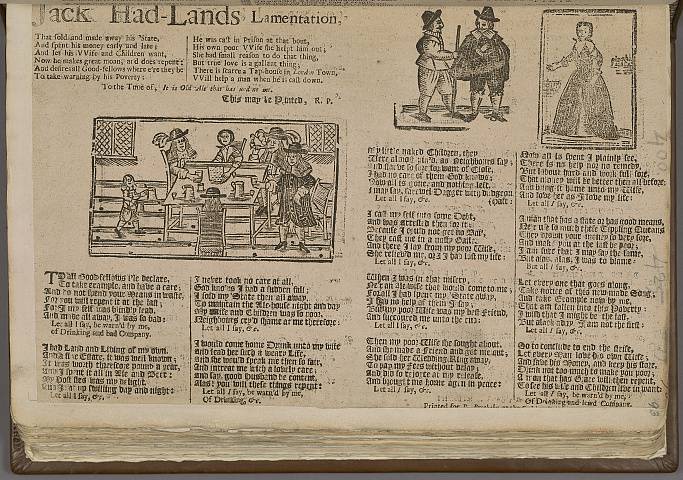 Jack Had-Lands Lamentation,
That sold and made away his State,
And spent his money early and late:
And let his VVife and Children want,
Now he makes great moan, and does repent;
And desires all Good-fellows where e're they be
To take warning by his Poverty:
He was cast in Prison at that bout,
His own poor VVife she helpt him out;
She had small reason to do that thing,
But true love is a gallant thing;
There is scarce a Tap-house in London Town,
VVill help a man when he is cast down.
To the Tune of, It is Old Ale that has undone me.
This may be Printed, R. P.
TO all Good-fellows I'le declare,
To take example, and have a care;
And do not spend your Means in waste,
For you will repent it at the last;
For I my self was blindly lead,
And mine all away, I was so bad:
Let all I say, be warn'd by me,
Of Drinking and bad Company.
I had Land and Living of my own,
And a fine Estate, it was well known;
It was worth threescore pound a year,
And I spent it all in Ale and Beer:
My Hostess was my delight,
Let all I say, &c.
I never took no care at all,
God knows I had a sudden fall;
I sold my State then all away,
To maintain the Ale-house night and day
My Wife and Children was so poor,
Neighbours cry'd shame at me therefore:
Let all I say, &c.
I would come home Drunk unto my wife
And lead her such a weary Life,
And she would speak me then so fair,
And intreat me with a lovely care,
and say, good Husband be content,
Alas! you will these things repent:
Let all I say, be warn'd by me,
Of Drinking, &c.
My little naked Children, they
Were almost pin'd, as Neighbours say;
And starve so fare for want of Close,
I had no care of them God knows;
Now all is gone, and nothing left,
I may say, farewel Dagger with dudgeon
(haft:
Let all I say, &c.
I cast my self into some Debt,
and was arrested then for it:
Because I could not get no Bay,
They cast me in a nasty Gaile.
And there I lay from my poor Wife,
She reliev'd me, or I had lost my life:
Let all I say, &c.
When I was in that misery,
Ne'r an Ale-wife that would come to me
For all I had spent my State away,
I had no help of them I say;
But my poor Wife was my best Friend,
She succoured me unto the end:
Let all I say, &c.
Then my poor Wife she sought about.
And she made a Friend and got me out;
She sold her Wedding Ring away,
To pay my Fees without delay:
And did so rejoice at my release,
And brought me home again in peace:
Let all I say, &c.
Now all is spent I plainly see,
There is no help nor no remedy,
But labour hard and work full sore,
That money will be better then all before;
And bring it home unto my Wife,
And love her as I love my life:
Let all I say, &c.
A man that has a state or has good means,
They devour your money so very fore,
And make you at the last be poor;
I am sure that I may say the same,
But alas, alas, I was to blame:
But all I say, &c.
Let every one that goes along,
Take notice of this new-made Song;
And take Example now by me,
That am fallen into this Poverty:
I wish that I might be the last,
But alack-day, I am not the first:
Let all I say, &c.
So to conclude to end the strife,
Let every Man love his own Wife;
And save his Money, and keep his store,
Drink not too much to make you poor;
A man that has State will then repent,
To see his Wife and Children live in want:
Let all I say, be warn'd by me,
Of Drinking and lewd Company.
Printed for P.